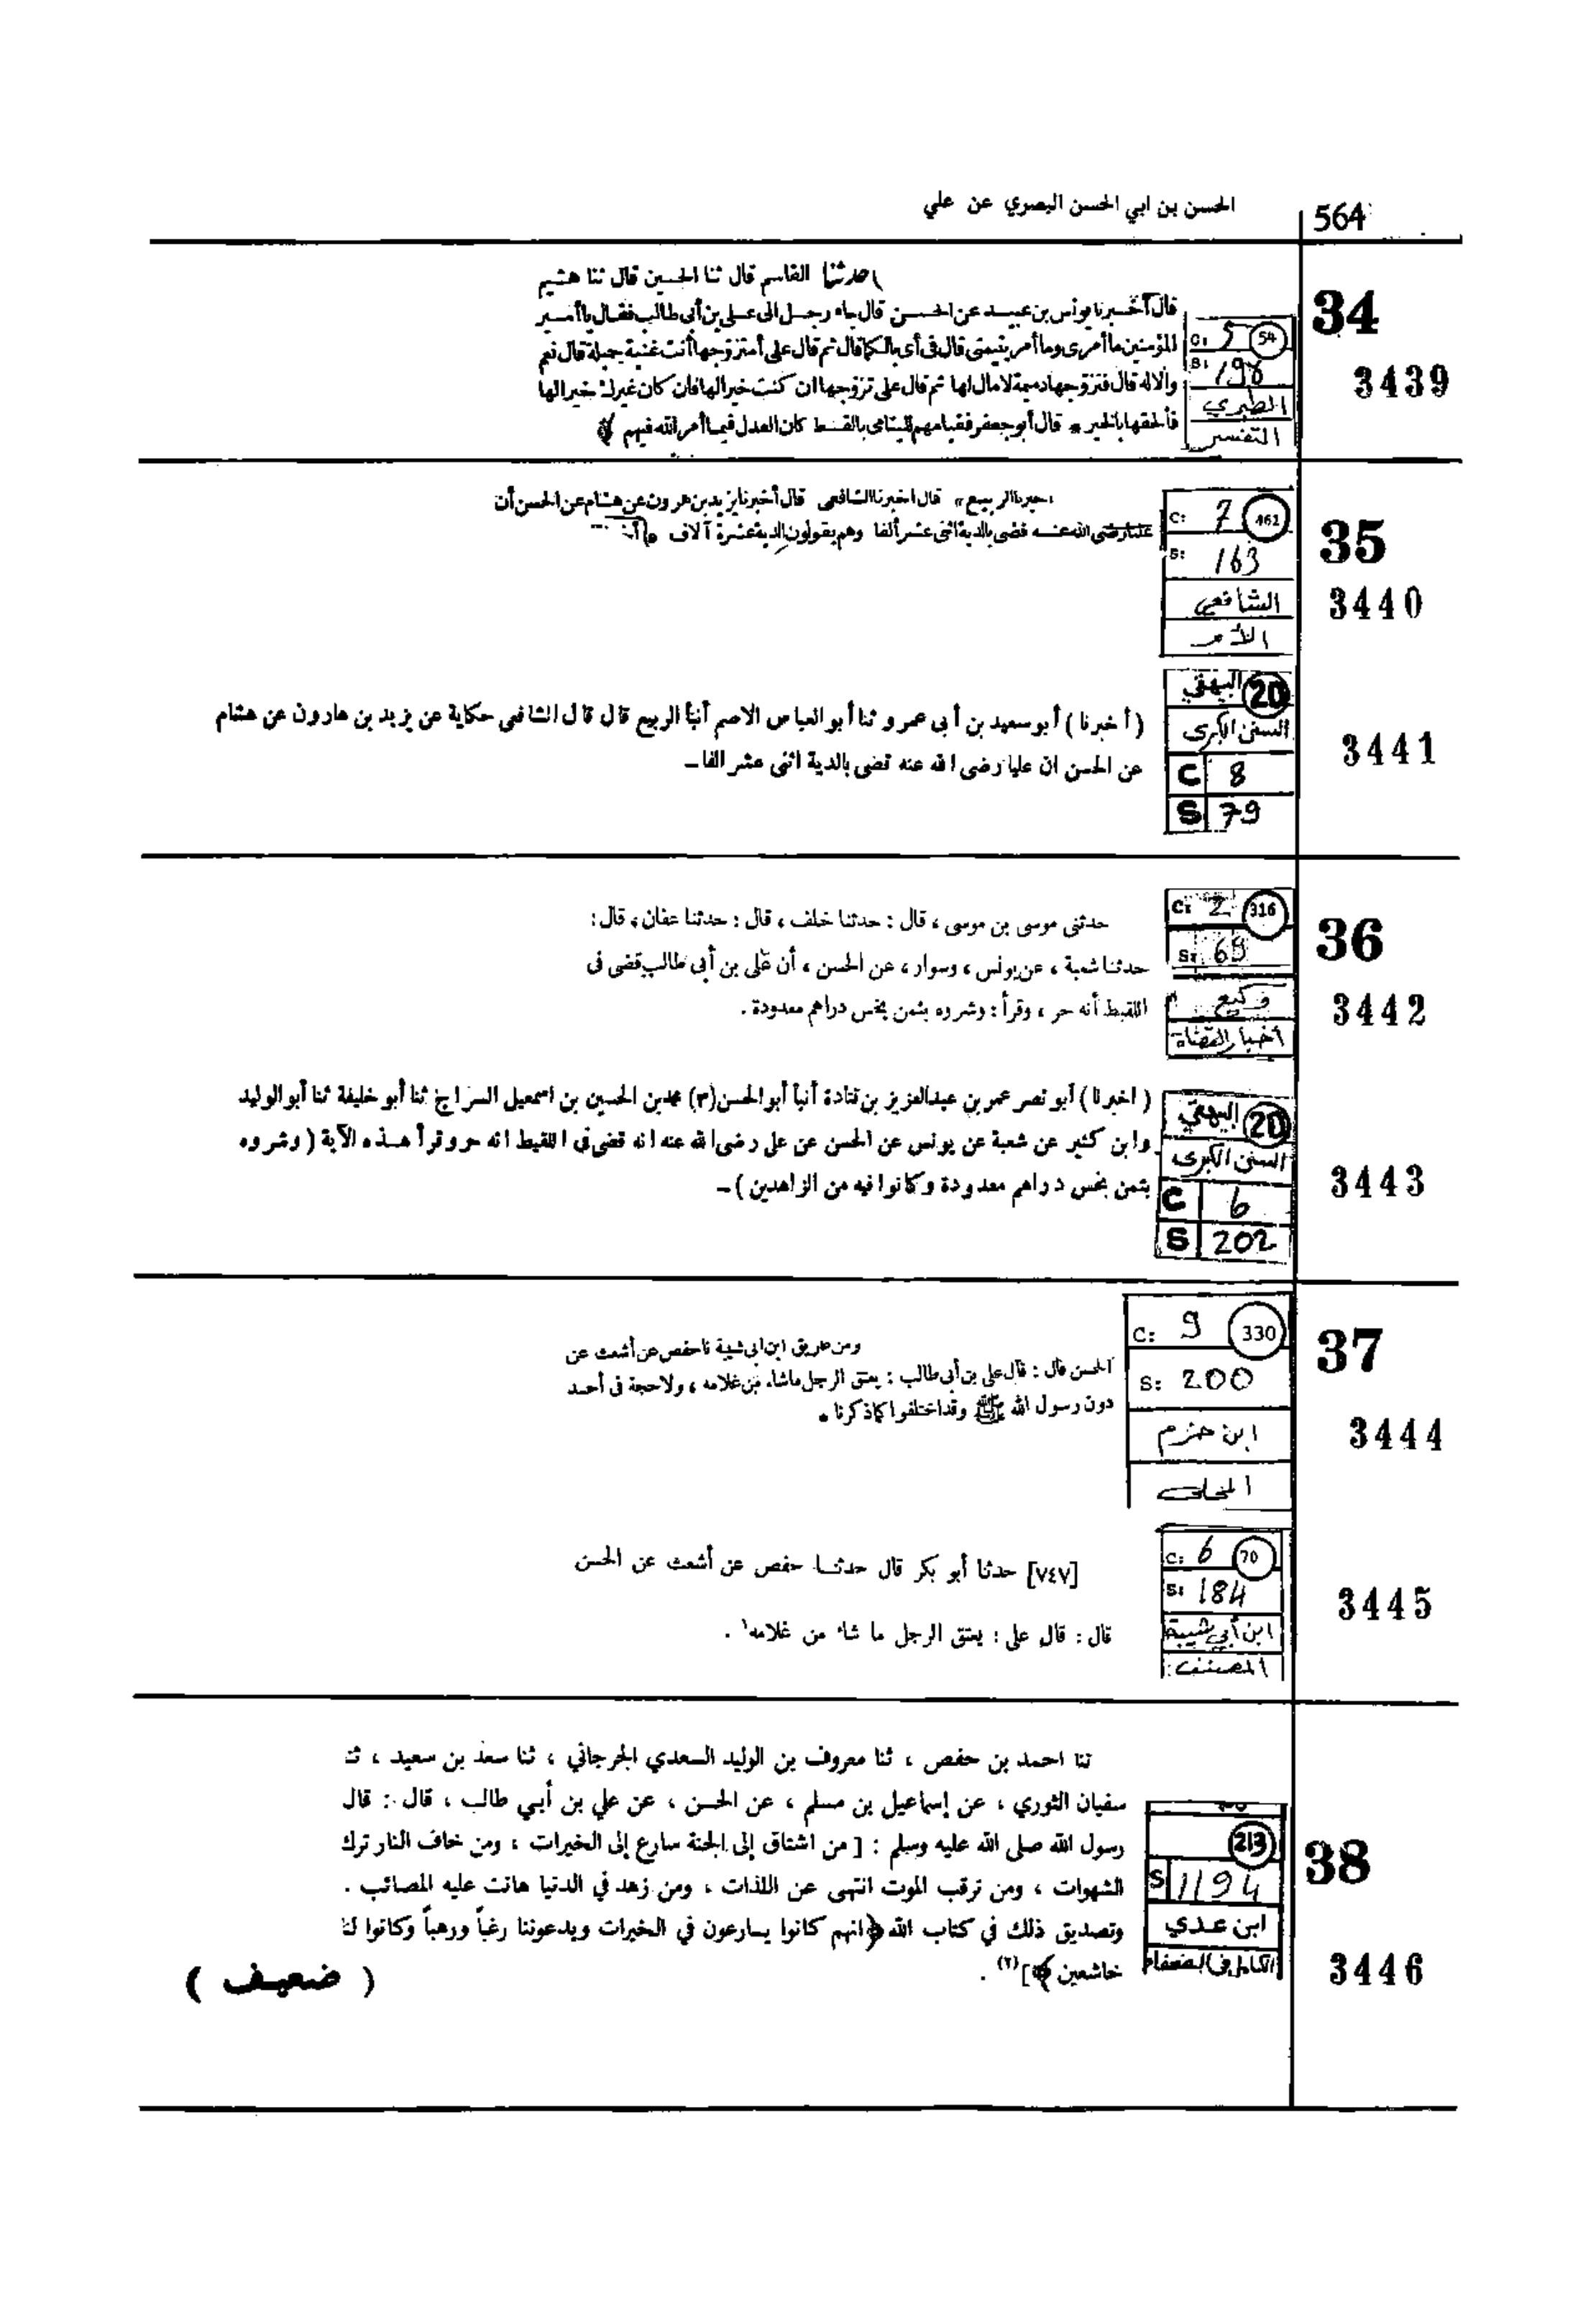 564
الحسن بن ابي الحسن البصري عن علي
34
3439
C: 5 54
S: 198
الطبري
التفسير
حدثنا القاسم قال ثنا الحسين قال ثنا هشيم
قال أخبرنا يونس بن عبيد عن الحسن قال جاء رجل الى على بن أبى طالب فقال يا أمير
المؤمنين ما أمرى وما أمر يتيمتى قال فى أى بالكما قال ثم قال على أمتزوجها أنت غنية جميلة قال نعم
والاله قال فتزوجها دميمة لا مال لها ثم قال على تزوجها ان كنت خيرالها فان كان غيرك خيرالها
فألحقها بالخير * قال أبو جعفر فقيامهم لليتامى بالقسط كان العدل فيما أمر الله فيهم
35
3440
C: 7 461
S: 163
الشافعي
الأم
أخبرنا الربيع» قال اخبرنا الشافعى قال أخبرنا يزيد بن هرون عن هشام عن الحسن أن
عليا رضى الله عنه قضى بالدية اثنى عشر ألفا وهم يقولون الدية عشرة آلاف
3441
البيهقي 20
السنن الكبرى
C 8
S 79
( أخبرنا ) أبو سعيد بن أبى عمرو ثنا أبو العباس الاصم أنبأ الربيع قال قال الشافعى حكاية عن يزيد بن هارون عن هشام
عن الحسن ان عليا رضى الله عنه قضى بالدية اثنى عشر الفا ـ
36
3442
C: 2 316
S: 69
وكيع
أخبار القضاة
حدثنى موسى بن موسى ، قال : حدثنا خلف ، قال : حدثنا عفان ، قال :
حدثنا شعبة ، عن يونس ، وسوار ، عن الحسن ، أن على بن أبى طالب قضى فى
اللقيط أنه حر ، وقرأ : وشروه بثمن بخس دراهم معدودة .
3443
البيهقي 20
السنن الكبرى
C 6
S 202
( اخبرنا ) أبو نصر عمر بن عبدالعزيز بن قتادة أنبأ أبو الحسن (٣) محمد بن الحسين بن اسمعيل السراج ثنا أبو خليفة ثنا أبو الوليد
وابن كثير عن شعبة عن يونس عن الحسن عن على رضى الله عنه انه قضى فى اللقيط انه حر وقرأ هذه الآية ( وشروه
بثمن بخس دراهم معدودة وكانوا فيه من الزاهدين ) ـ
37
3444
C: 9 330
S: 200
ابن حزم
المحلى
ومن طريق ابن ابى شيبة نا حفص عن أشعث عن
الحسن قال : قال على بن أبى طالب : يعتق الرجل ما شاء من غلامه ، ولا حجة فى أحد
دون رسول الله ﷺ وقد اختلفوا كما ذكرنا *
3445
C: 6 70
S: 184
ابن أبي شيبة
المصنف
[٧٤٧] حدثنا أبو بكر قال حدثنا حفص عن أشعث عن الحسن
قال : قال على : يعتق الرجل ما شاء من غلامه١ .
38
3446
213
S 1194
ابن عدي
الكامل في الضعفاء
ثنا احمد بن حفص ، ثنا معروف بن الوليد السعدي الجرجاني ، ثنا سعد بن سعيد ، ثنا
سفيان الثوري ، عن إسماعيل بن مسلم ، عن الحسن ، عن علي بن أبي طالب ، قال : قال
رسول الله صلى الله عليه وسلم : [ من اشتاق إلى الجنة سارع إلى الخيرات ، ومن خاف النار ترك
الشهوات ، ومن ترقب الموت انتهى عن اللذات ، ومن زهد في الدنيا هانت عليه المصائب .
وتصديق ذلك في كتاب الله ﴿انهم كانوا يسارعون في الخيرات ويدعوننا رغباً ورهباً وكانوا لنا
خاشعين ﴾](٢) .
( ضعيف )